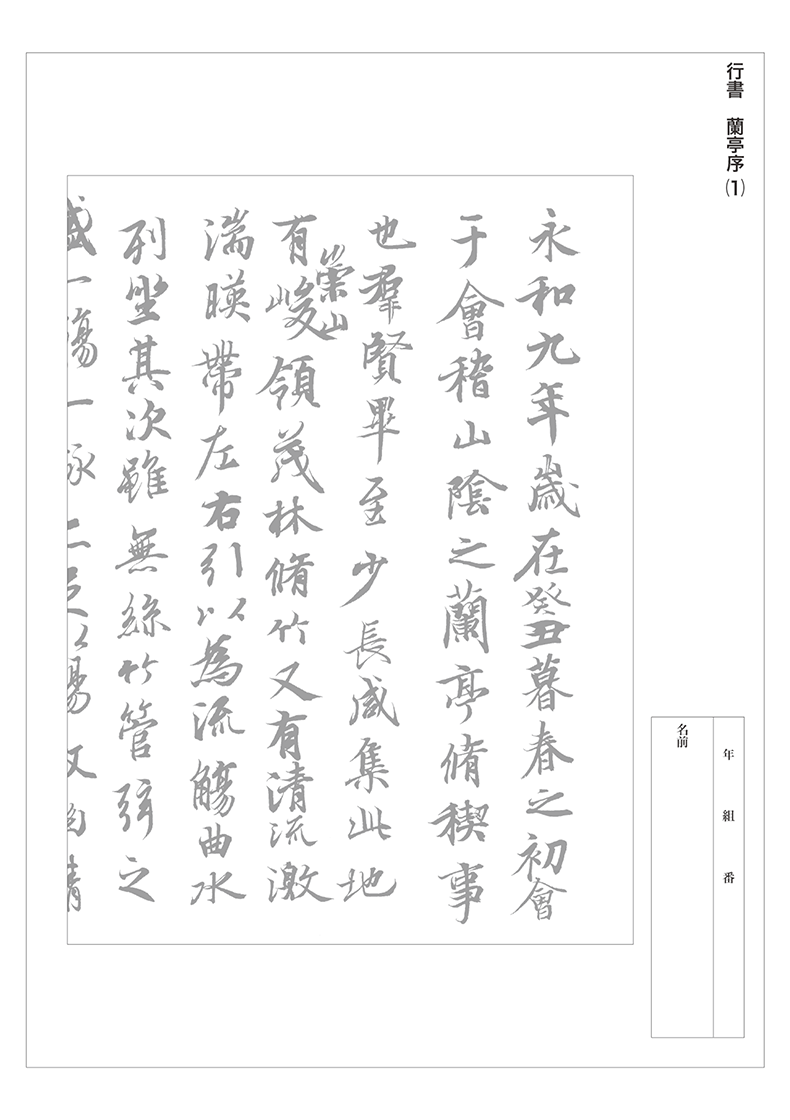 行書 蘭亭序(1)
永和九年歳在癸丑暮春之初會
于會稽山陰之蘭亭脩稧事
也羣賢畢至少長咸集此地
有崇山峻領茂林脩竹又有清流激
湍暎帶左右引以為流觴曲水
列坐其次雖無絲竹管弦之
盛一觴一詠二足以暢叙幽情
年 組 番
名前